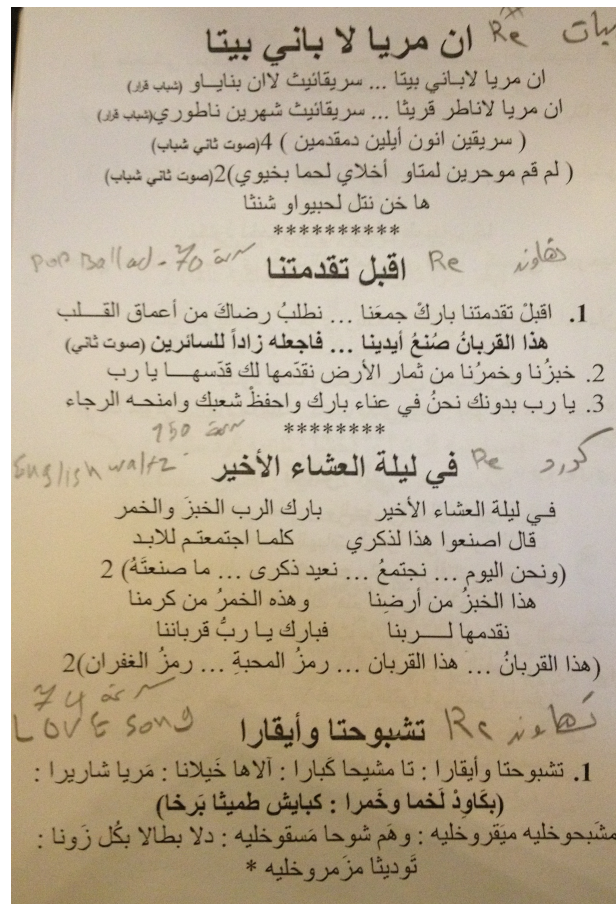 ان مريا لا باني بيتا Re بيات
ان مريا لاباني بيتا ... سريقائيث لاان بنايـاو (شباب قرار)
ان مريا لاناطر قريثا ... سريقائيث شهرين ناطوري(شباب قرار)
( سريقين انون أيلين دمقدمين ) 4(صوت ثاني شباب)
( لم قم موحرين لمتاو أخلاي لحما بخيوي)2(صوت ثاني شباب)
ها خن نتل لحبيواو شنثا
**********
اقبل تقدمتنا Re نهاوند
POP Ballad - 70
1. اقبلْ تقدمتنا باركْ جمعَنا ... نطلبُ رضاكَ من أعماق القـــلب
هذا القربانُ صُنعُ أيدينا ... فاجعله زاداً للسائرين (صوت ثاني)
2. خبزُنا وخمرُنا من ثمار الأرض نقدّمها لك قدّسهـــا يا رب
3. يا رب بدونك نحنُ في عناء بارك واحفظْ شعبك وامنحـه الرجاء
********
150
في ليلة العشاء الأخير Re كورد
English waltz
فـي ليلة العشاء الأخير بارك الرب الخبزَ والخمر
قال اصنعوا هذا لذكري كلمـا اجتمعتـم للابـد
(ونحن اليوم ... نجتمعُ ... نعيد ذكرى ... ما صنعتَهُ) 2
هذا الخبزُ من أرضِنا وهذه الخمرُ من كرمنا
نقدمها لـــربنا فبارك يـا ربُّ قرباننا
(هذا القربانُ ... هذا القربان ... رمزُ المحبةِ ... رمزُ الغفران)2
74
تشبوحتا وأيقارا Re نهاوند
LOVE song
1. تشبوحتا وأيقارا : تا مشيحا كَبارا : آلاها خَيلانا : مَريا شاريرا :
(بكَاودْ لَخما وخَمرا : كبايش طميثا بَرخا)
مشَبحوخليه ميَقروخليه : وهَم شوحا مَسقوخليه : دلا بطالا بكُل زَونا :
تَوديثا مزَمروخليه *